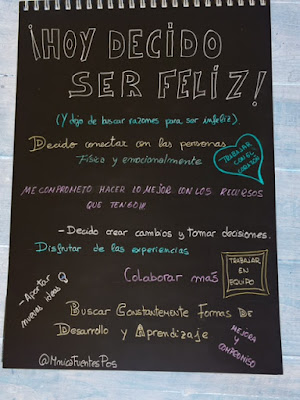 ¡HOY DECIDO
SER FELIZ!
(Y dejo de buscar razones para ser infeliz).
Decido conectar con las personas
Física y emocionalmente
TRABAJAR
CON EL
CORAZÓN
ME COMPROMETO HACER LO MEJOR CON LOS RECURSOS
QUE TENGO!!!
- Decido crear cambios y tomar decisiones.
Disfrutar de las experiencias
TRABAJAR
EN
EQUIPO
Colaborar más
- Aportar
nuevas ideas
Buscar Constantemente Formas De
Desarrollo y Aprendizaje
MEJORA Y
COMPROMISO
@MnicaFuentesPos